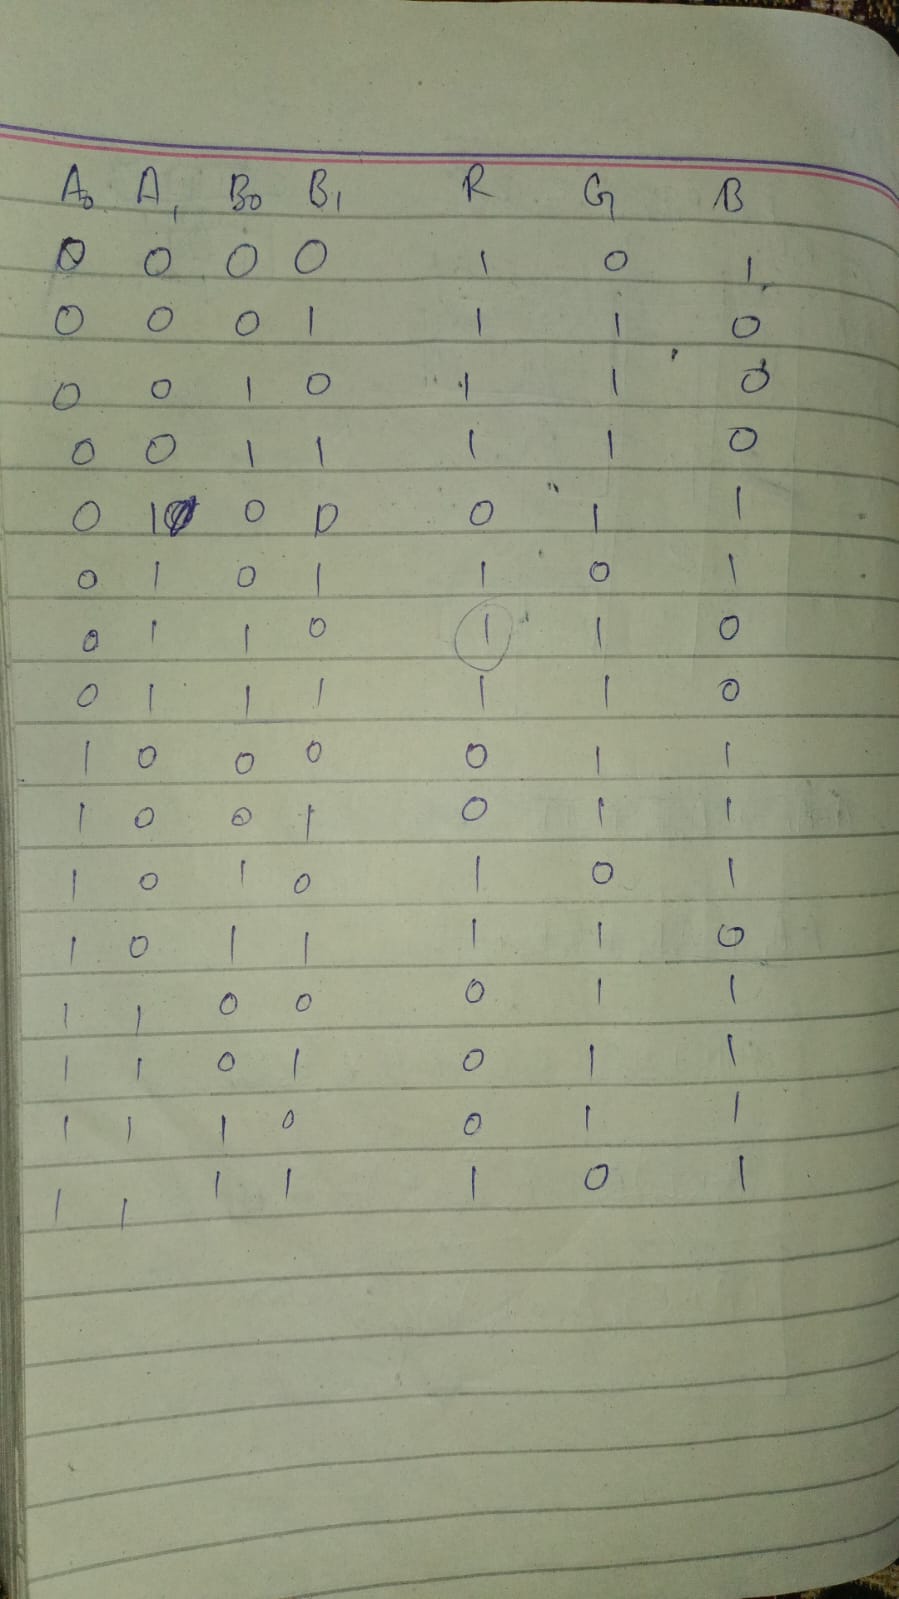 A0 A1 B0 B1 R G B
0 0 0 0 1 0 1
0 0 0 1 1 1 0
0 0 1 0 1 1 0
0 0 1 1 1 1 0
0 1 0 0 0 1 1
0 1 0 1 1 0 1
0 1 1 0 1 1 0
0 1 1 1 1 1 0
1 0 0 0 0 1 1
1 0 0 1 0 1 1
1 0 1 0 1 0 1
1 0 1 1 1 1 0
1 1 0 0 0 1 1
1 1 0 1 0 1 1
1 1 1 0 0 1 1
1 1 1 1 1 0 1